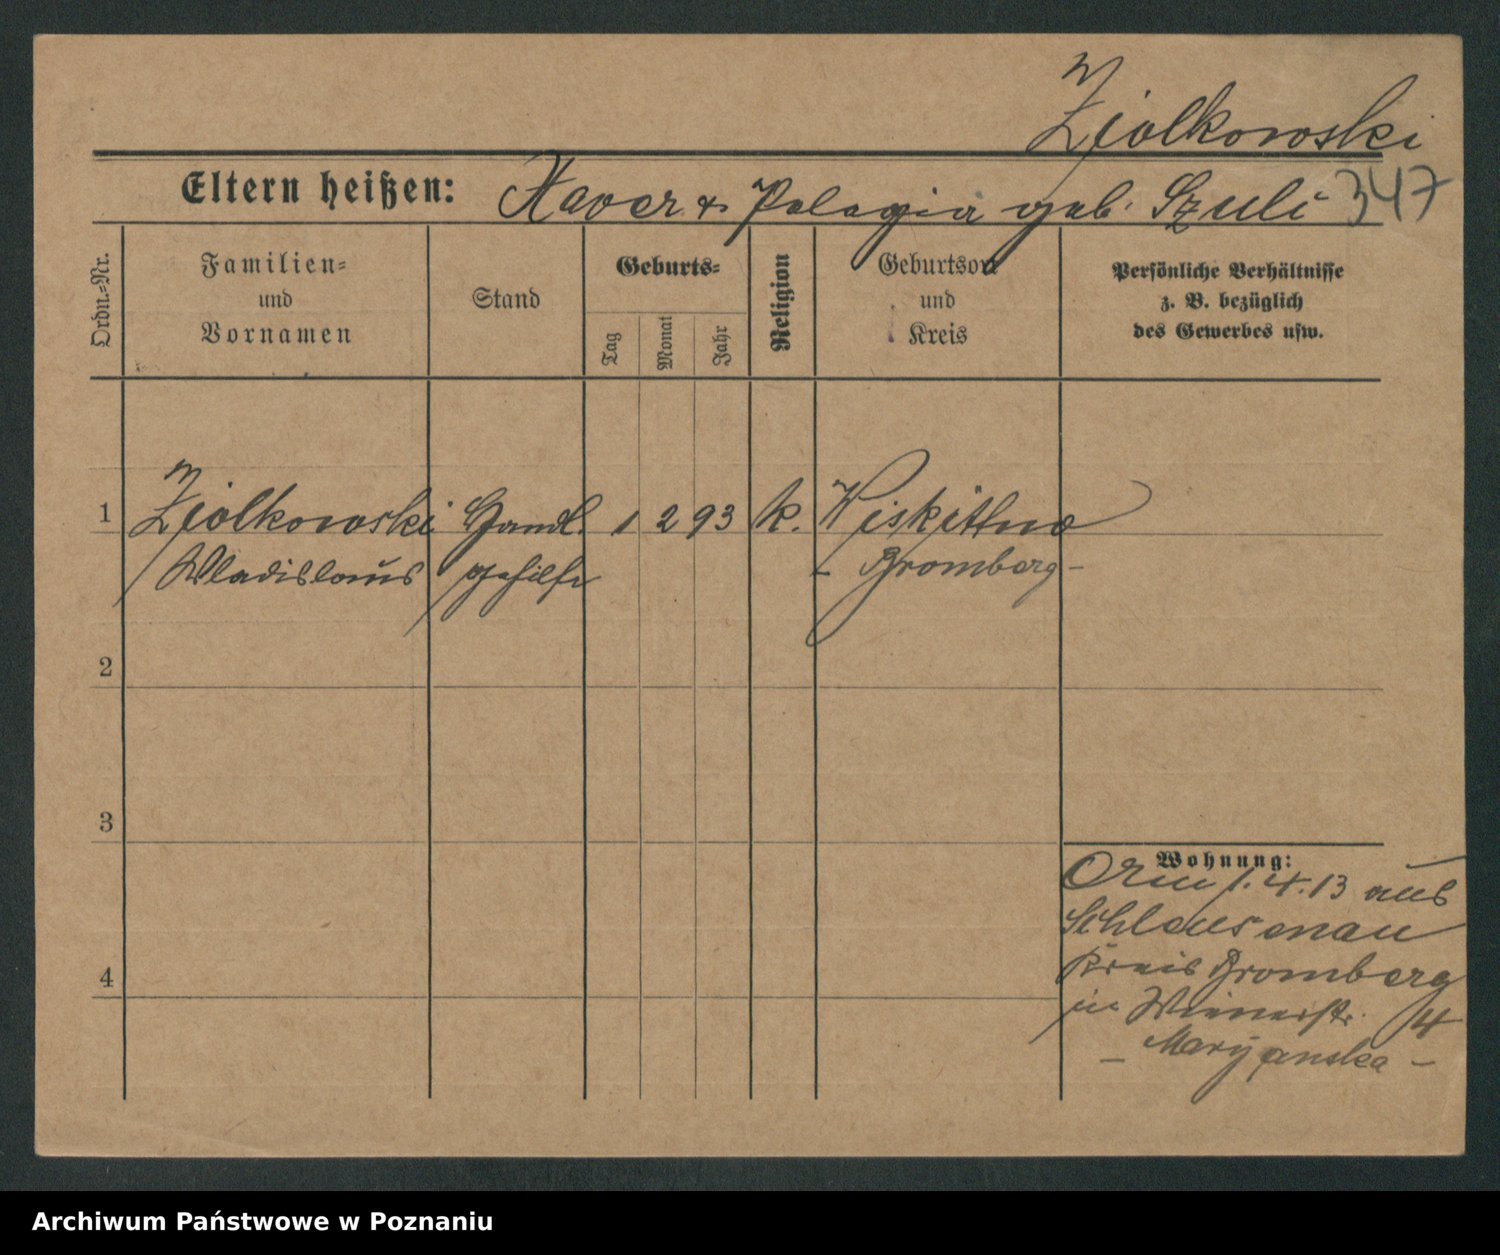 Ziolkowski
Eltern heißen: Xaver & Pelagia geb. Szulc 347
Ordn.-Nr.
Familien-
und
Vornamen
Stand
Geburts-
Tag
Monat
Jahr
Religion
Geburtsort
und
Kreis
Persönliche Verhältnisse
z. B. bezüglich
des Gewerbes usw.
1 Ziolkowski Handl. 1 2 93 k. Wiskittno
Wladislaus gehilfe - Bromberg -
2
3
Wohnung:
Am 1.4.13 aus
Schleusenau
Kreis Bromberg
4
in Wienerstr. 4
- Maryanska -
Archiwum Państwowe w Poznaniu